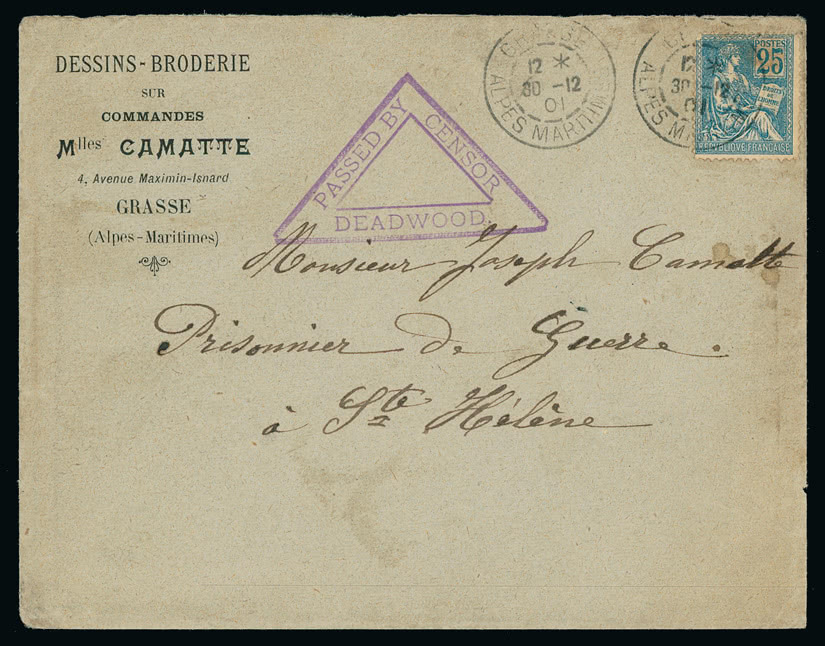 DESSINS-BRODERIE
SUR
COMMANDES
Mlles CAMATTE
4, Avenue Maximin-Isnard
GRASSE
(Alpes-Maritimes)
PASSED BY CENSOR
DEADWOOD
12 *
30 -12
01
ALPES MARITIMES
12 *
30 -12
01
ALPES
POSTES
25
DROITS DE L'HOMME
REPUBLIQUE FRANÇAISE
Monsieur Joseph Camatte
Prisonnier de Guerre.
à Ste Hélène